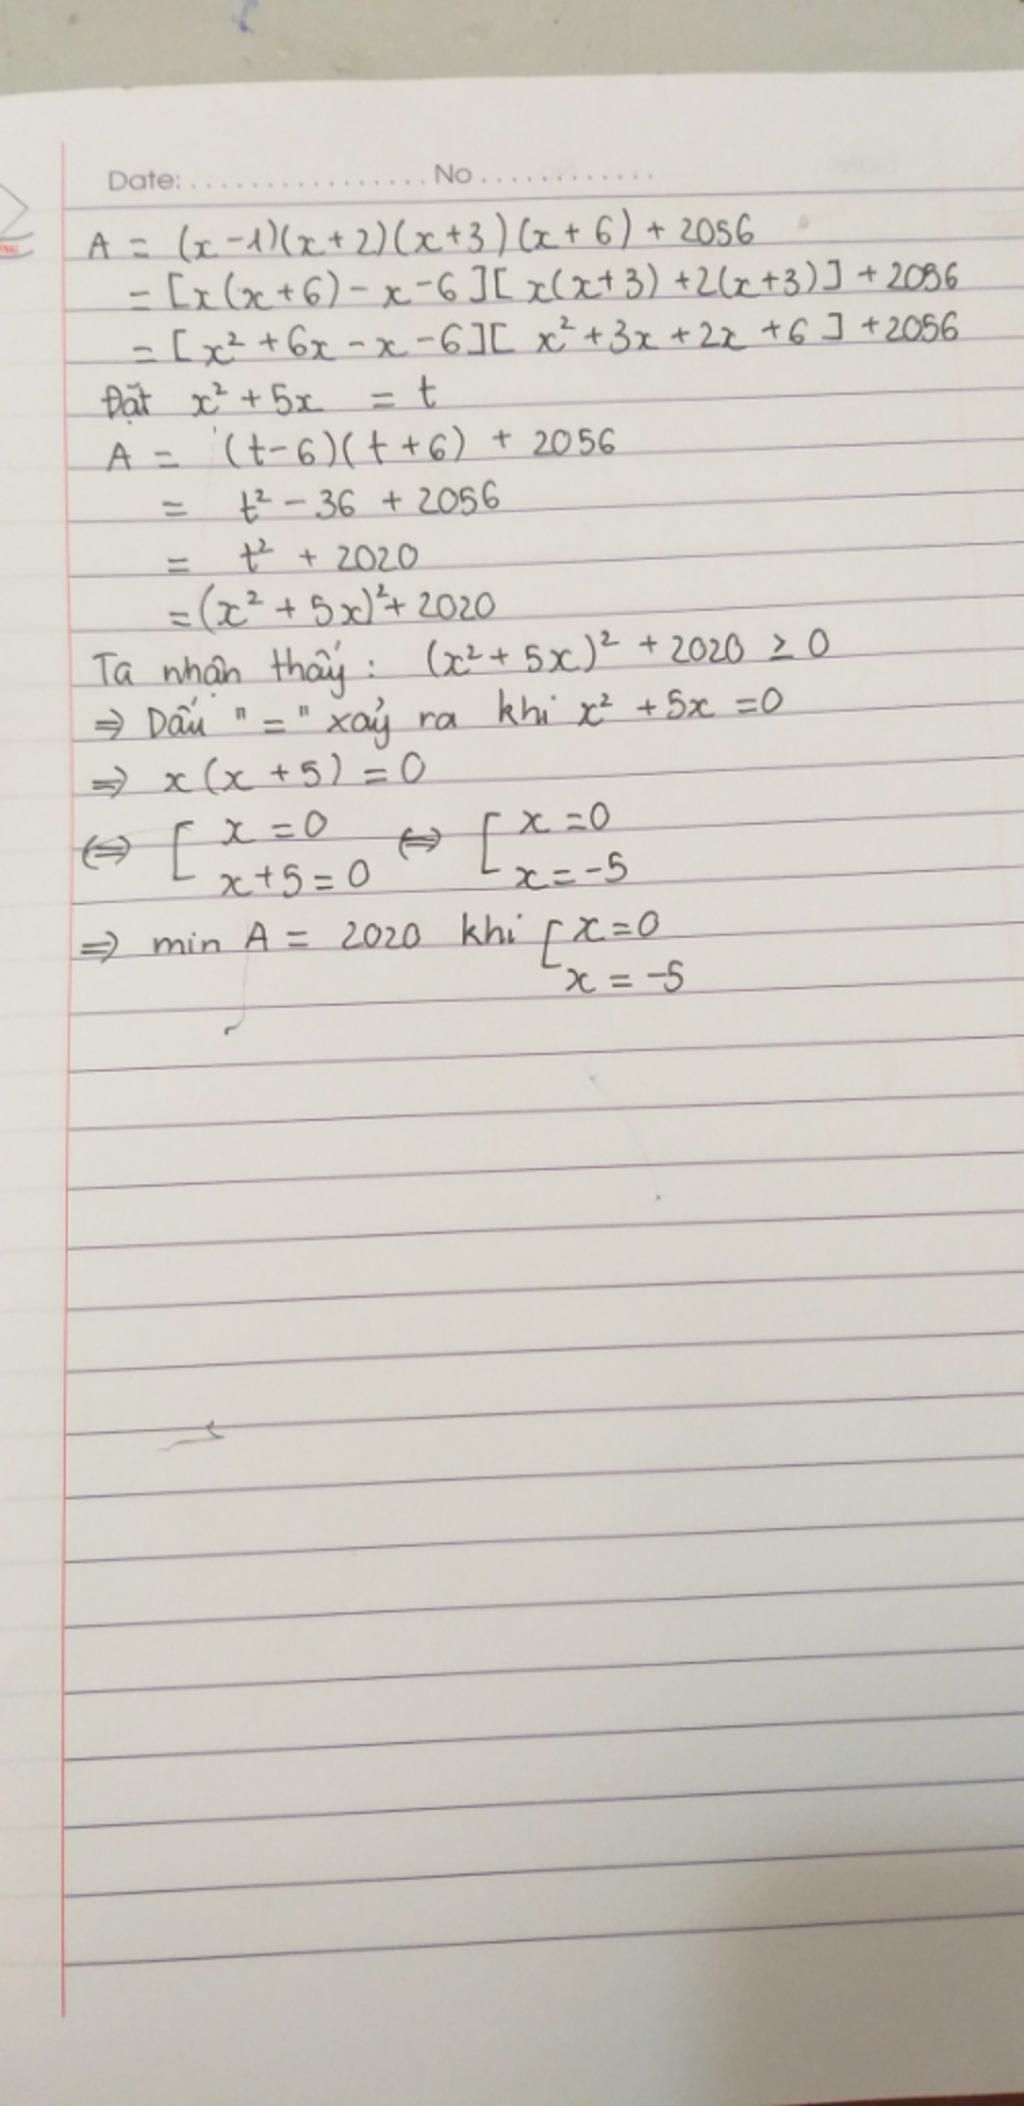 Date:.................No............
A = (x-1)(x+2)(x+3)(x+6) + 2056
= [x(x+6) - x - 6][ x(x+3) + 2(x+3)] + 2056
= [x² + 6x - x - 6][ x² + 3x + 2x + 6 ] + 2056
Đặt x² + 5x = t
A = (t-6)(t+6) + 2056
= t² - 36 + 2056
= t² + 2020
= (x² + 5x)² + 2020
Ta nhận thấy : (x² + 5x)² + 2020 ≥ 0
⇒ Dấu " = " xảy ra khi x² + 5x = 0
⇒ x(x + 5) = 0
⇔ [ x = 0 ⇔ [ x = 0
x + 5 = 0 x = -5
⇒ min A = 2020 khi [ x = 0
x = -5